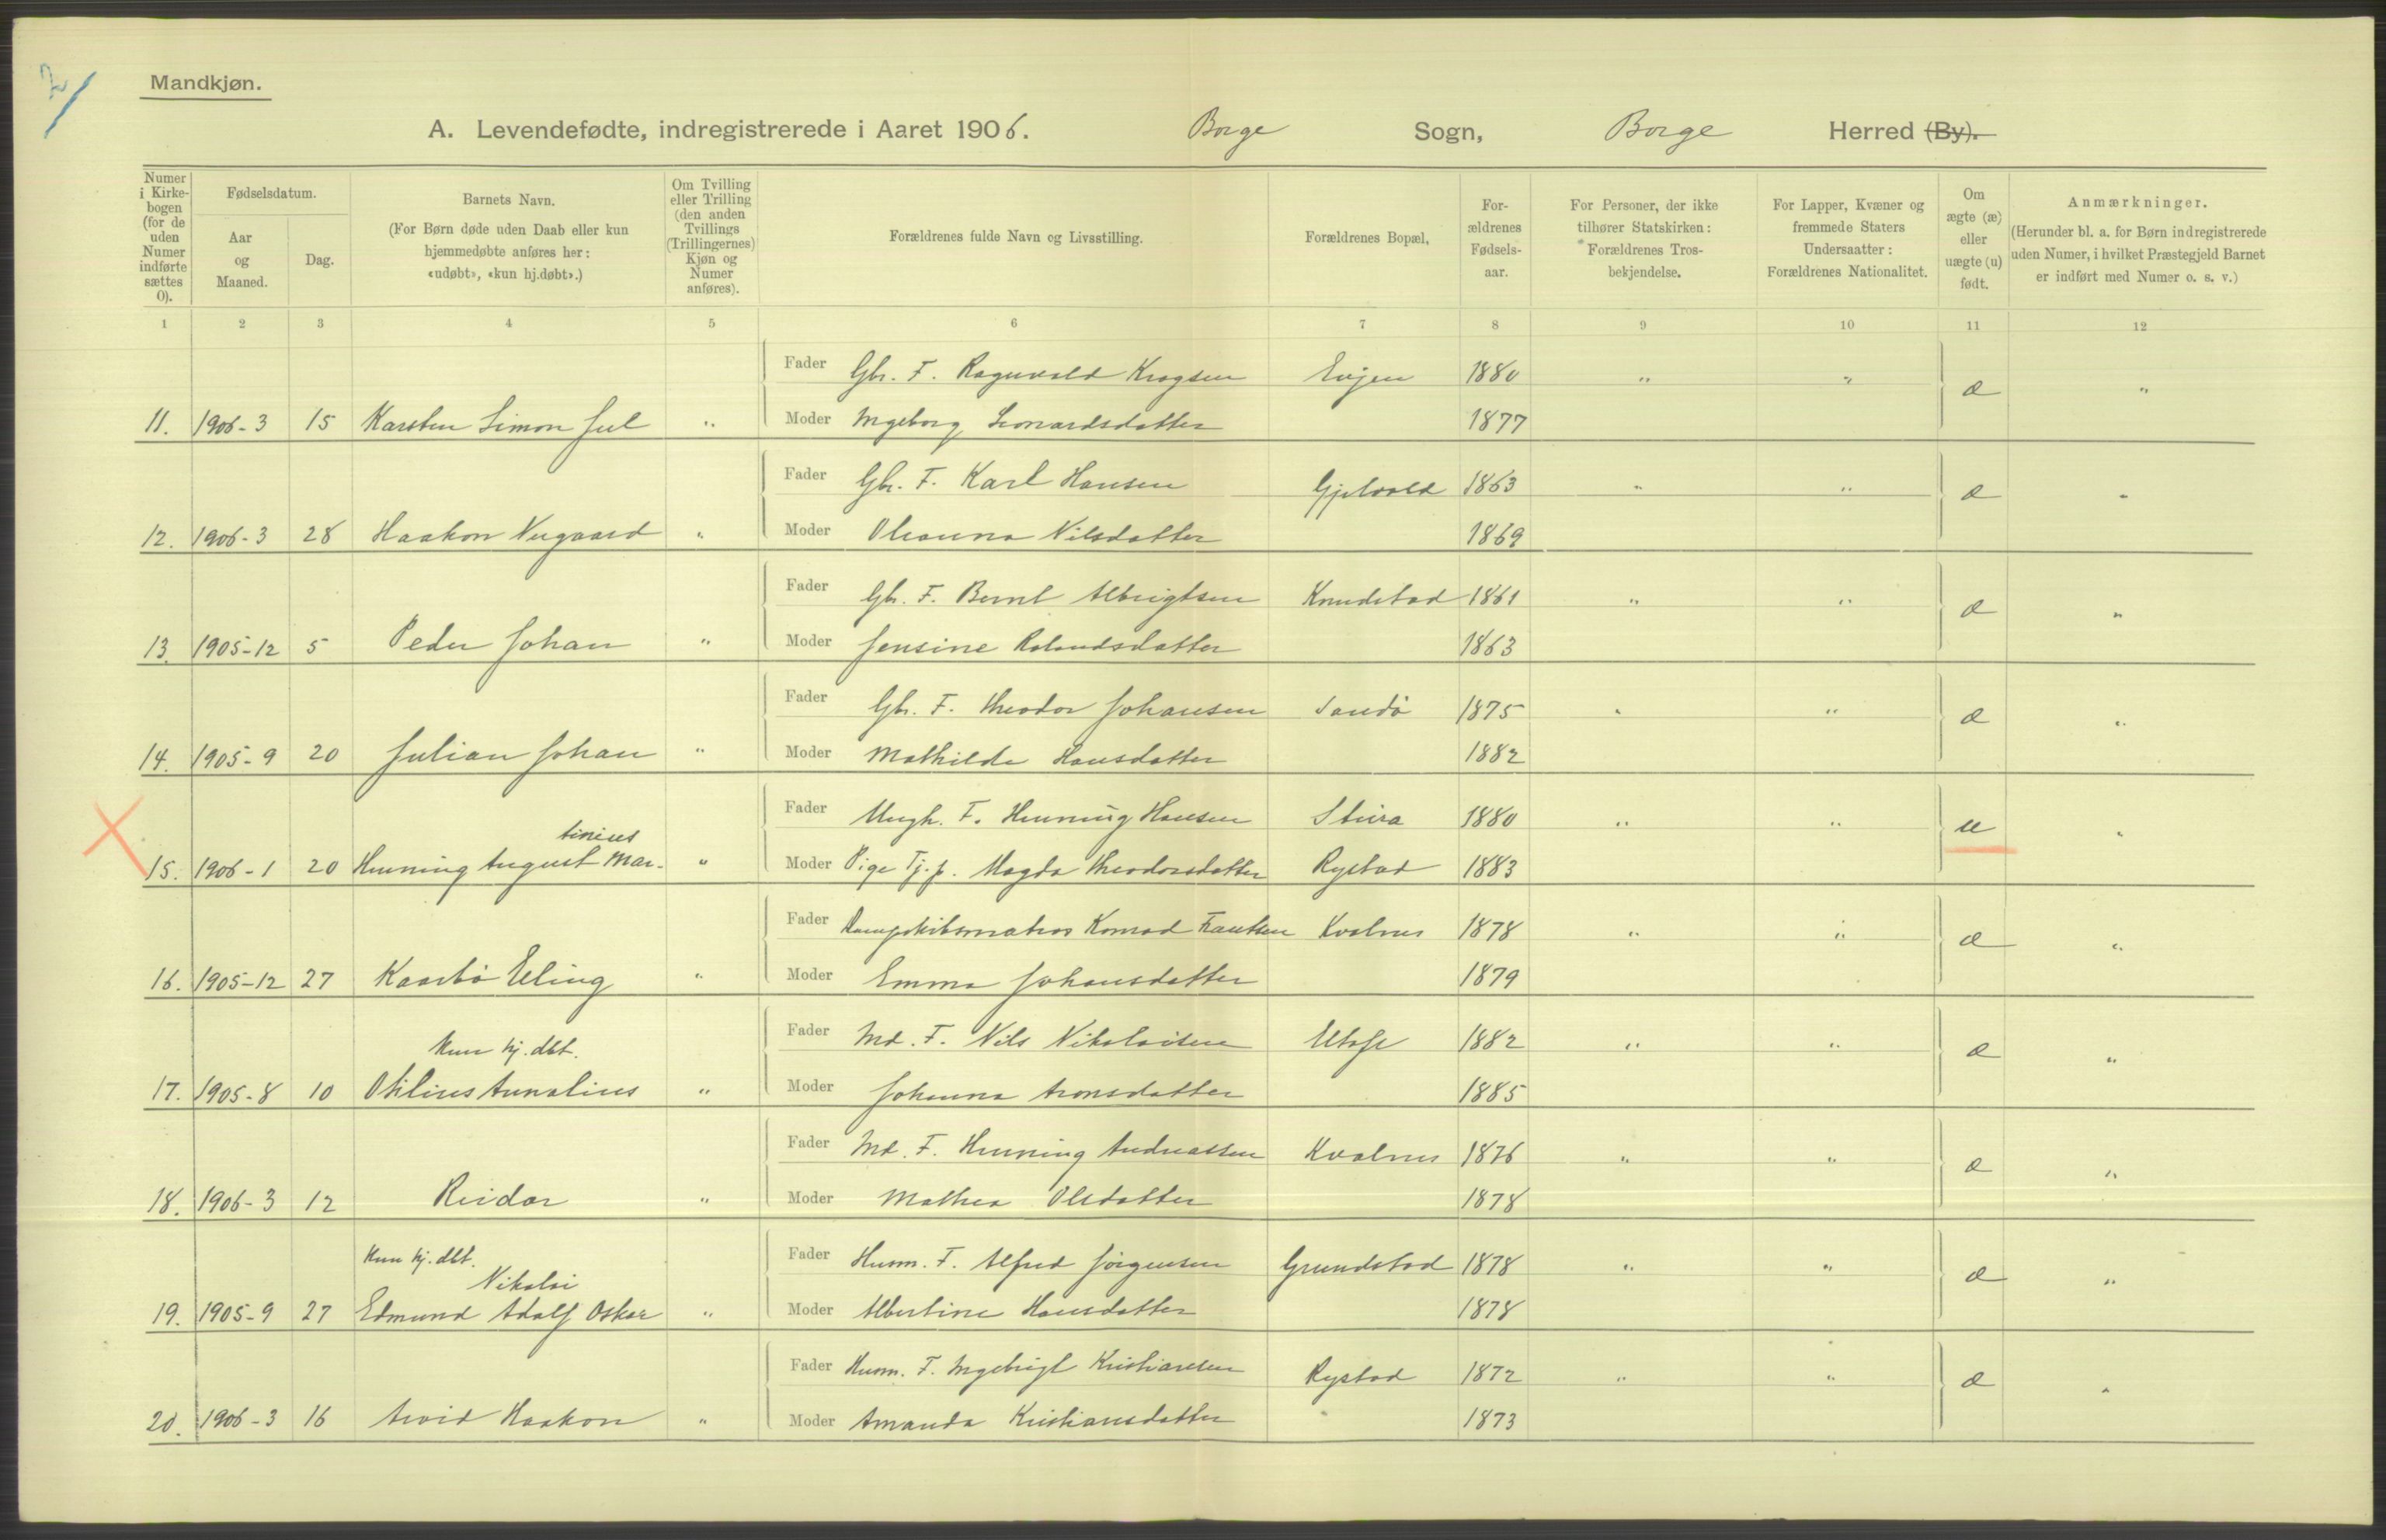 2/
Mandkjøn.
A. Levendefødte, indregistrerede i Aaret 1906. Borge Sogn, Borge Herred (By).
Numer i Kirkebogen (for de uden Numer indførte sættes 0).
Fødselsdatum.
Aar og Maaned.
Dag.
Barnets Navn.
(For Børn døde uden Daab eller kun hjemmedøbte anføres her: «udøbt», «kun hj.døbt».)
Om Tvilling eller Trilling (den anden Tvillings (Trillingernes) Kjøn og Numer anføres).
Forældrenes fulde Navn og Livsstilling.
Forældrenes Bopæl,
Forældrenes Fødselsaar.
For Personer, der ikke tilhører Statskirken: Forældrenes Trosbekjendelse.
For Lapper, Kvæner og fremmede Staters Undersaatter: Forældrenes Nationalitet.
Om ægte (æ) eller uægte (u) født.
Anmærkninger.
(Herunder bl. a. for Børn indregistrerede uden Numer, i hvilket Præstegjeld Barnet er indført med Numer o. s. v.)
1 2 3 4 5 6 7 8 9 10 11 12
Fader Gbr. F. Ragnvald Krogsen Evjen 1880 " " æ "
11. 1906-3 15 Karsten Simon Jul " Moder Ingeborg Leonardsdatter 1877
Fader Gbr. F. Karl Hansen Gjelvold 1863 " " æ "
12. 1906-3 28 Haakon Nygaard " Moder Oleanna Nilsdatter 1869
Fader Gbr. F. Bernt Albrigtsen Knudstad 1861 " " æ "
13. 1905-12 5 Peder Johan " Moder Jensine Rolandsdatter 1863
Fader Gbr. F. Theodor Johansen Sandö 1875 " " æ "
14. 1905-9 20 Julian Johan " Moder Mathilde Hansdatter 1882
Fader Ungk. F. Henning Hansen Stiira 1880 " " u "
tinius
15. 1906-1 20 Henning August Mar- " Moder Pige Tj.p. Magda Theodorsdatter Rystad 1883
Fader Dampskibsmatros Konrad Frantsen Kvalnes 1878 " " æ "
16. 1905-12 27 Kaarbö Elling " Moder Emma Johansdatter 1879
Fader Md. F. Nils Nikolaisen Uhof 1882 " " æ "
Kun hj. dbt.
17. 1905-8 10 Otilius Annalius " Moder Johanna Aronsdatter 1885
Fader Md. F. Henning Andreassen Kvalnes 1876 " " æ "
18. 1906-3 12 Reidar " Moder Mathea Olsdatter 1878
Kun hj. dbt.
Fader Husm. F. Alfred Jörgensen Grundstad 1878 " " æ "
Nikolai
19. 1905-9 27 Edmund Adolf Oskar " Moder Albertine Hansdatter 1878
Fader Husm. F. Ingebrigt Kristiansen Rystad 1872 " " æ "
20. 1906-3 16 Arvid Haakon " Moder Amanda Kristiansdatter 1873